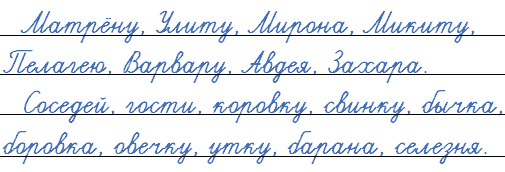 Матрёну, Улиту, Мирона, Микиту,
Пелагею, Варвару, Авдея, Захара.
Соседей, гости, коровку, свинку, бычка,
боровка, овечку, утку, барана, селезня.